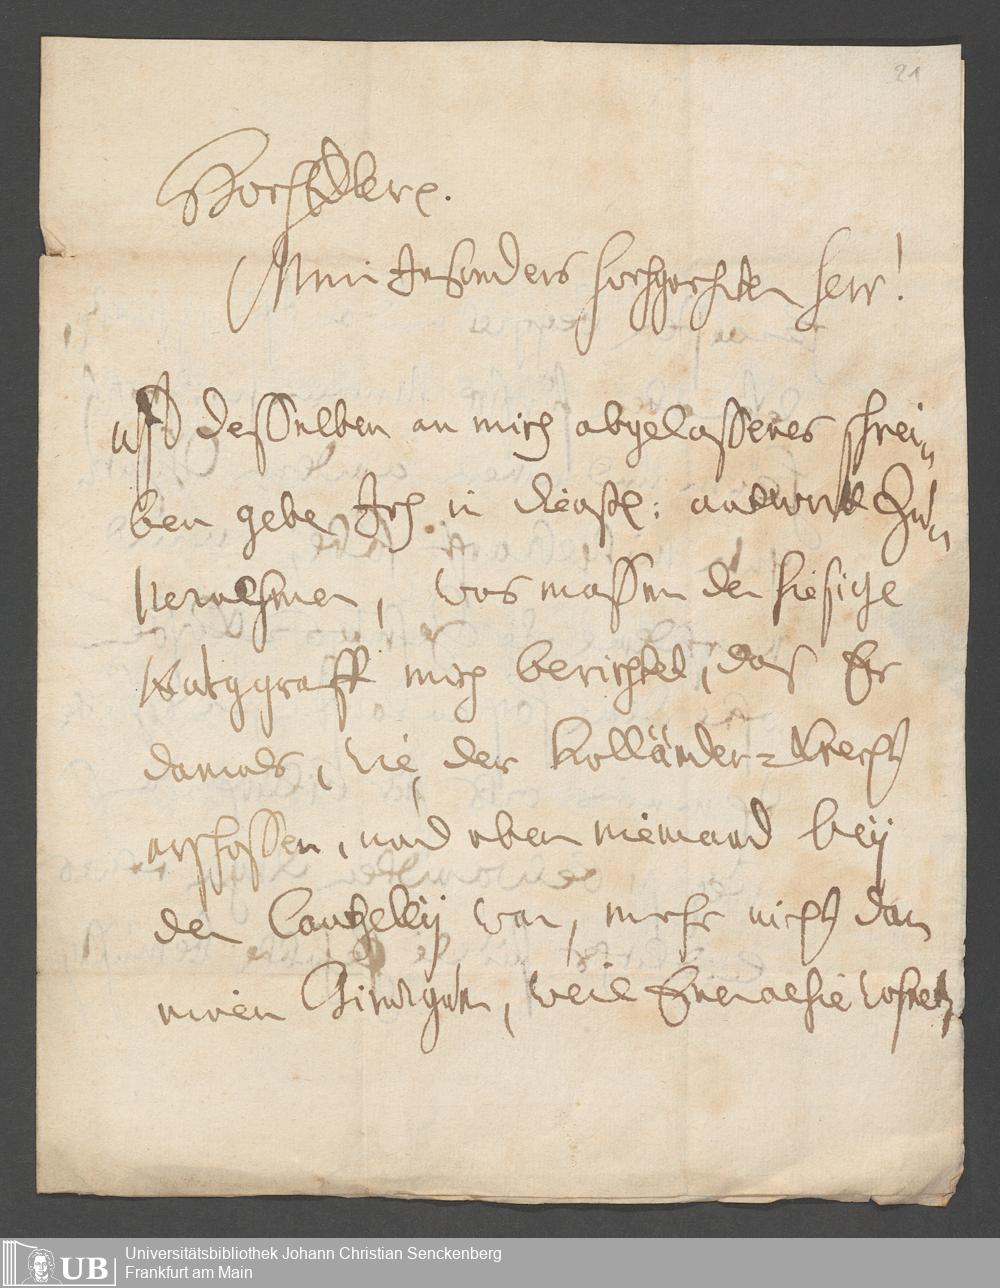 21
HochEdler.
Mein Insonders hochgeehrter Herr!
uff desselben an mich abgelassenes schrei-
ben gebe Ich in dienstl: antwort Zu-
vernehmen, was massen der hiesige
mich berichtet, das Er
damals, wie der Holländer-Knecht
erschossen, und eben niemand bey
der Cantzelley war, mehr nicht dan
einen weil Er nahe wohnet,
Universitätsbibliothek Johann Christian Senckenberg
Frankfurt am Main
UB